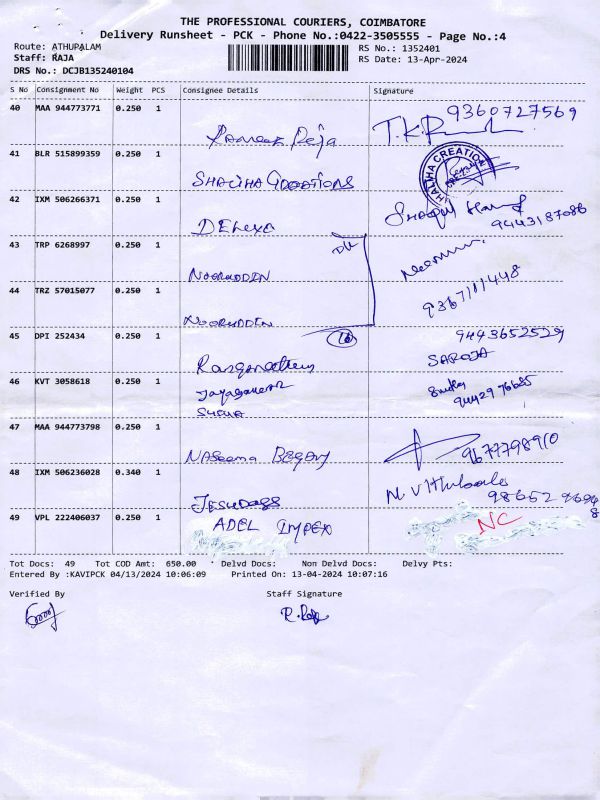 THE PROFESSIONAL COURIERS, COIMBATORE
Delivery Runsheet - PCK - Phone No.:0422-3505555 - Page No.:4
Route: ATHUPALAM RS No.: 1352401
Staff: RAJA RS Date: 13-Apr-2024
DRS No.: DCJB135240104
S No Consignment No Weight PCS Consignee Details Signature
40 MAA 944773771 0.250 1 9360727569
Raja
41 BLR 515899359 0.250 1
SHALIHA
42 IXM 506266371 0.250 1
9443187086
43 TRP 6268997 0.250 1
NOORUDDIN
44 TRZ 57015077 0.250 1 9367111448
NOORUDDIN
45 DPI 252434 0.250 1 9443652529
SAROJA
46 KVT 3058618 0.250 1
94429 76685
47 MAA 944773798 0.250 1
Naseema Begam 9677798910
48 IXM 506236028 0.340 1
JESUDASS
49 VPL 222406037 0.250 1
ADEL IMPEX NC
Tot Docs: 49 Tot COD Amt: 650.00 Delvd Docs: Non Delvd Docs: Delvy Pts:
Entered By :KAVIPCK 04/13/2024 10:06:09 Printed On: 13-04-2024 10:07:16
Verified By Staff Signature
R. Raja